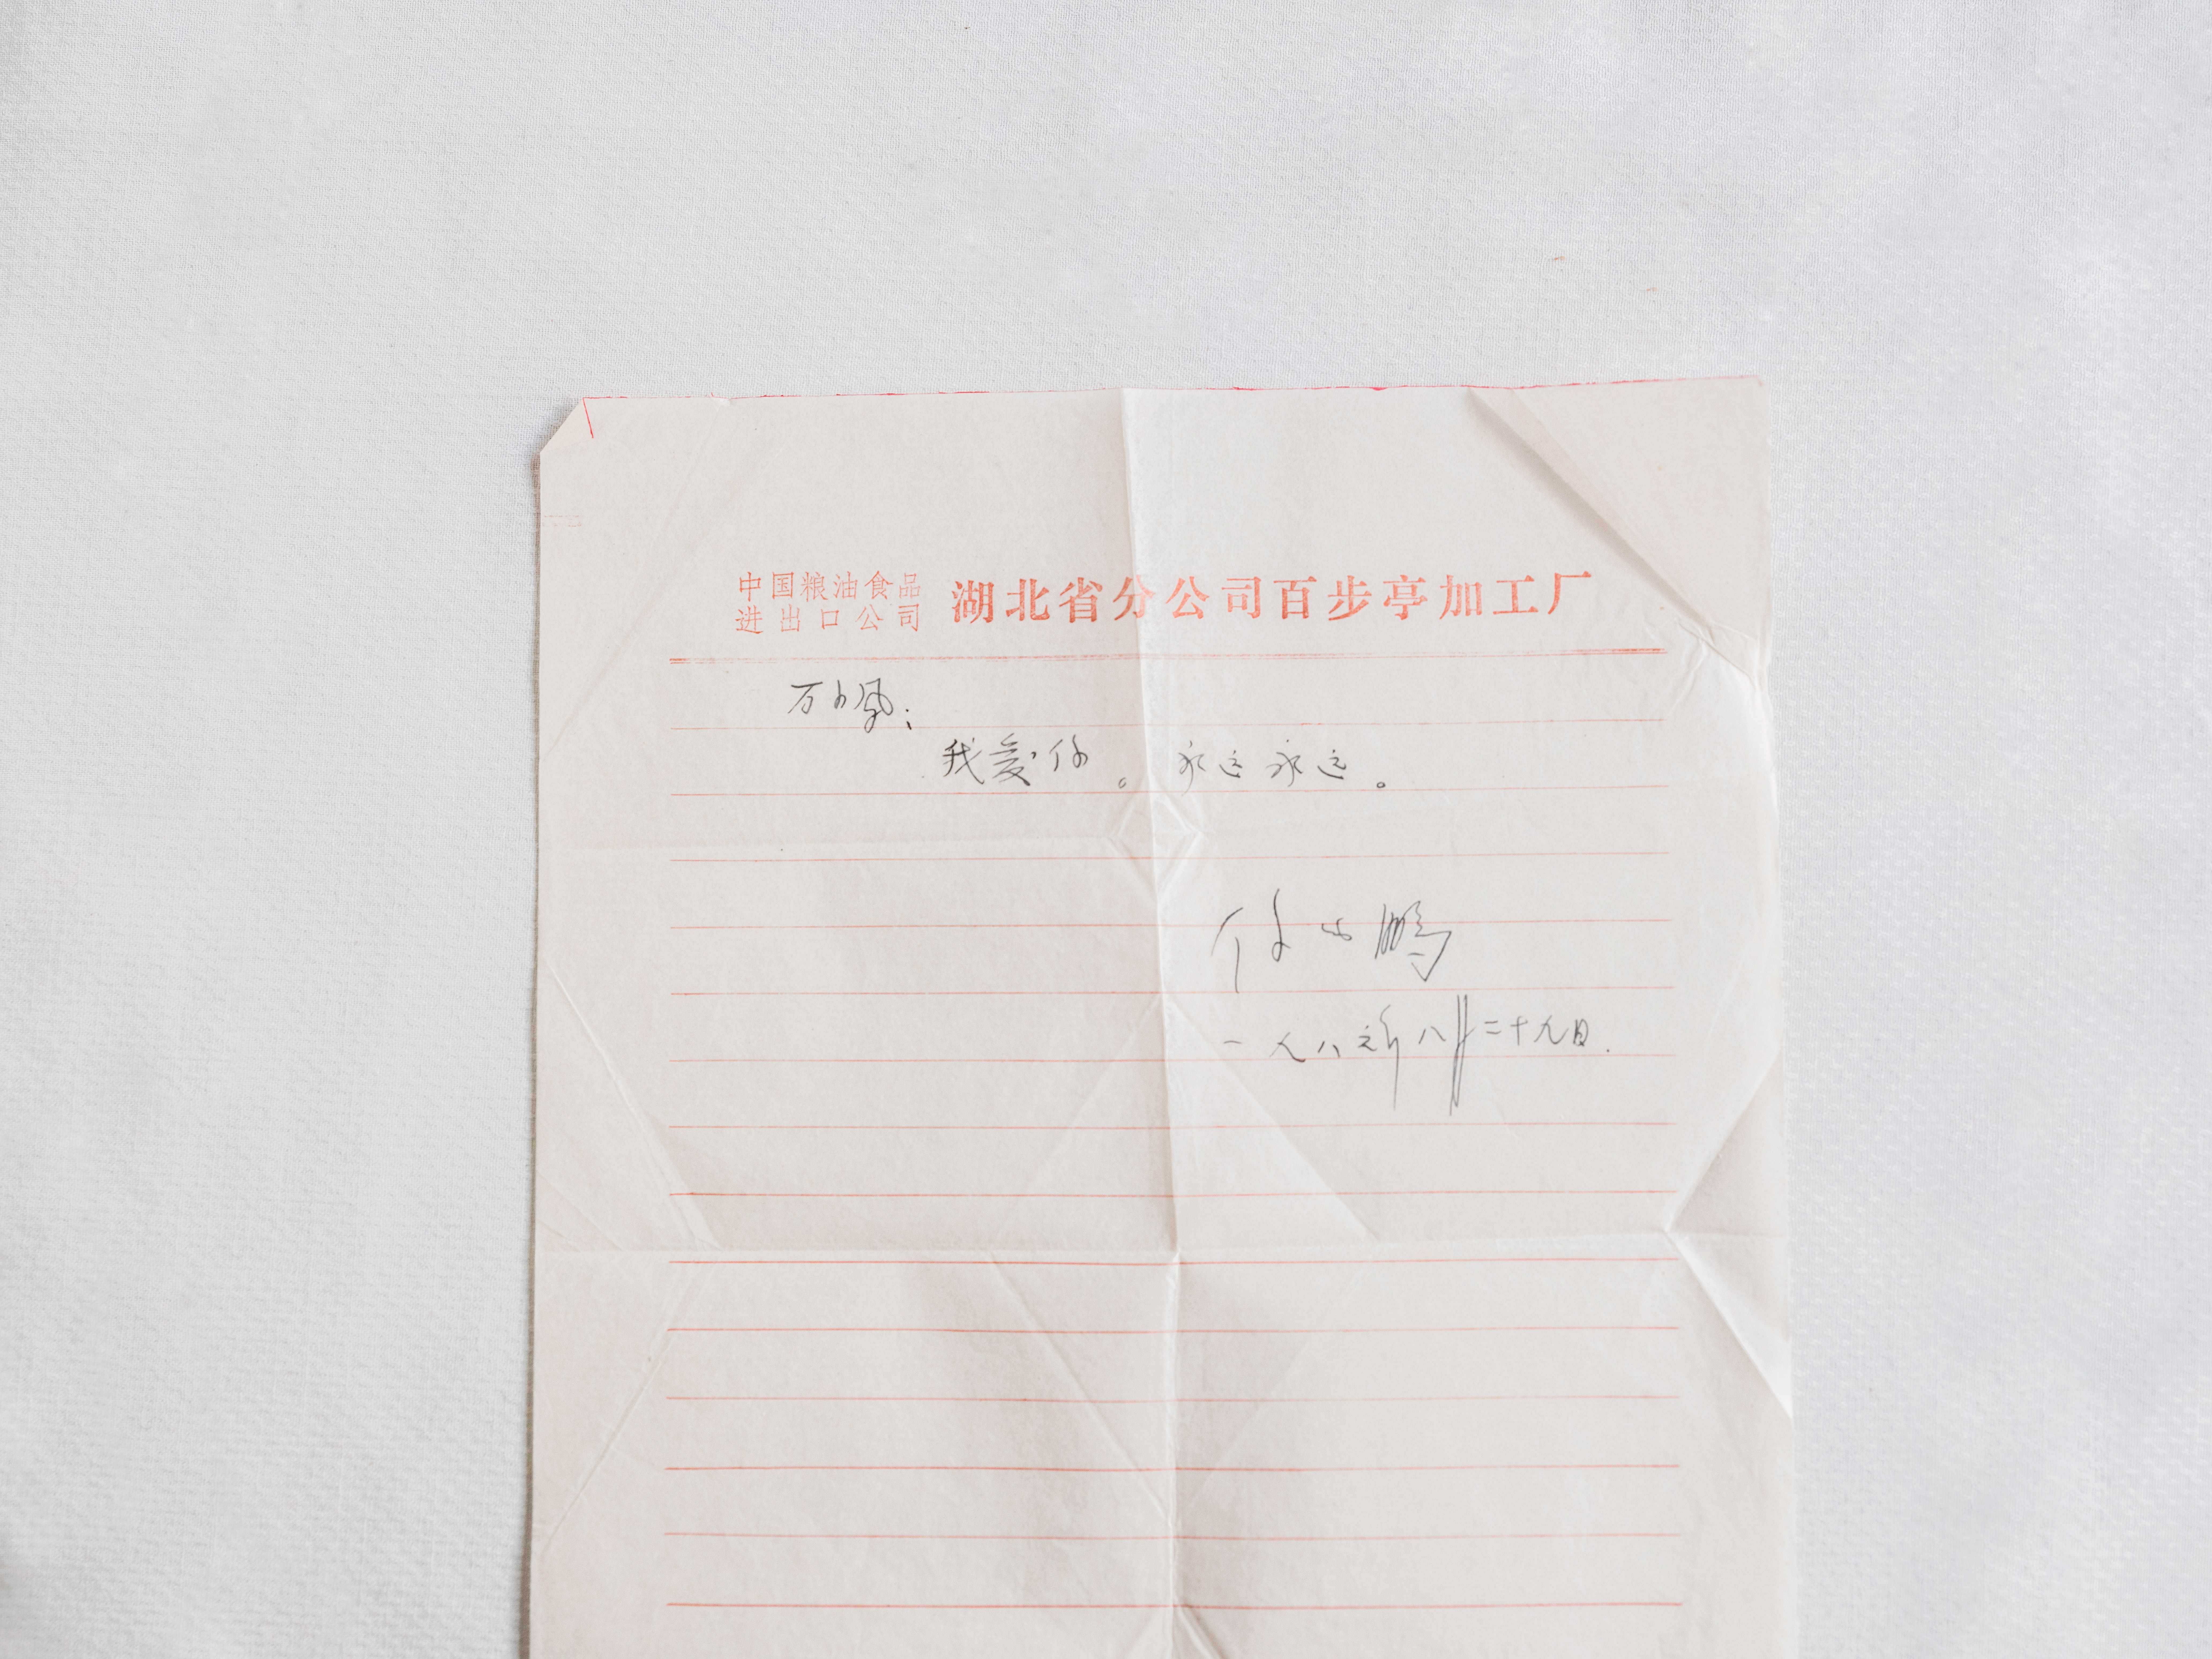 中国粮油食品
进出口公司
湖北省分公司百步亭加工厂
万小凤:
我爱你。永远永远。
付 鹏
一九八 年八月二十九日.